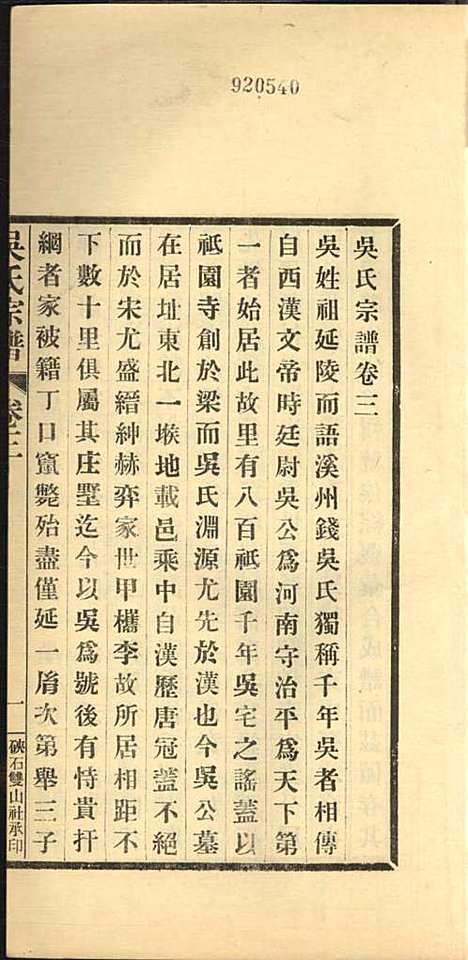 920540
吳氏宗譜卷三
吳姓祖延陵而語溪州錢吳氏獨稱千年吳者相傳
自西漢文帝時廷尉吳公爲河南守治平爲天下第
一者始居此故里有八百祗園千年吳宅之謠蓋以
祗園寺創於梁而吳氏淵源尤先於漢也今吳公墓
在居址東北一堠地載邑乘中自漢歷唐冠蓋不絕
而於宋尤盛縉紳赫弈家世甲檇李故所居相距不
下數十里俱屬其庄墅迄今以吳爲號後有恃貴扞
綱者家被籍丁口竄斃殆盡僅延一脣次第舉三子
吳氏宗譜 卷三 一 硤石雙山社承印